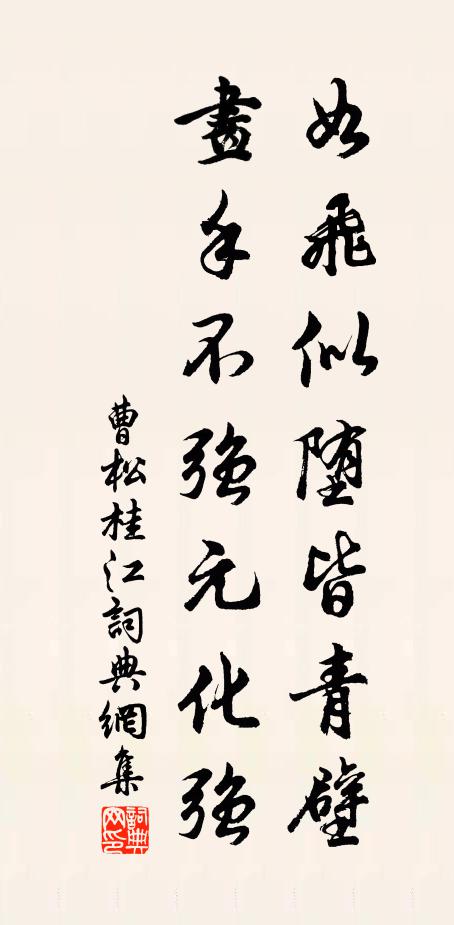 如飛似堕皆青壁
畫手不強元化強
曹松桂江詞典網集
詞典网印